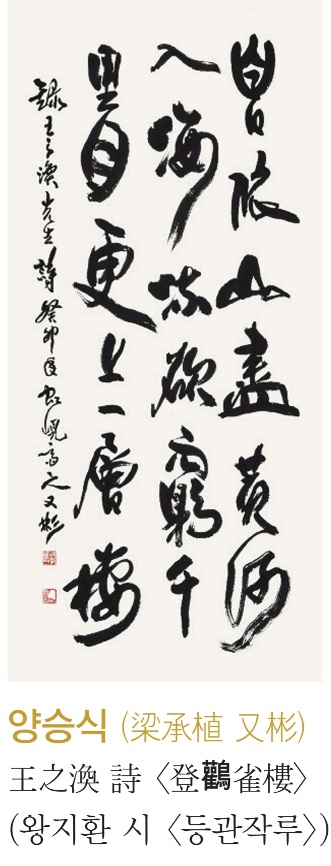 白日依山盡黃河
入海流欲窮千
里目更上一層樓
錄王之渙先生詩癸卯 又彬
양승식 (梁承植 又彬)
王之渙 詩 〈登鸛雀樓〉
(왕지환 시 〈등관작루〉)